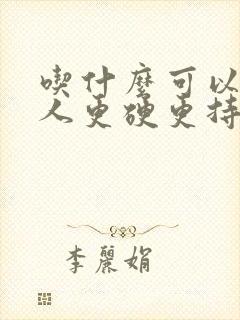 喫什麼可以
人更硬更持
李麗娟